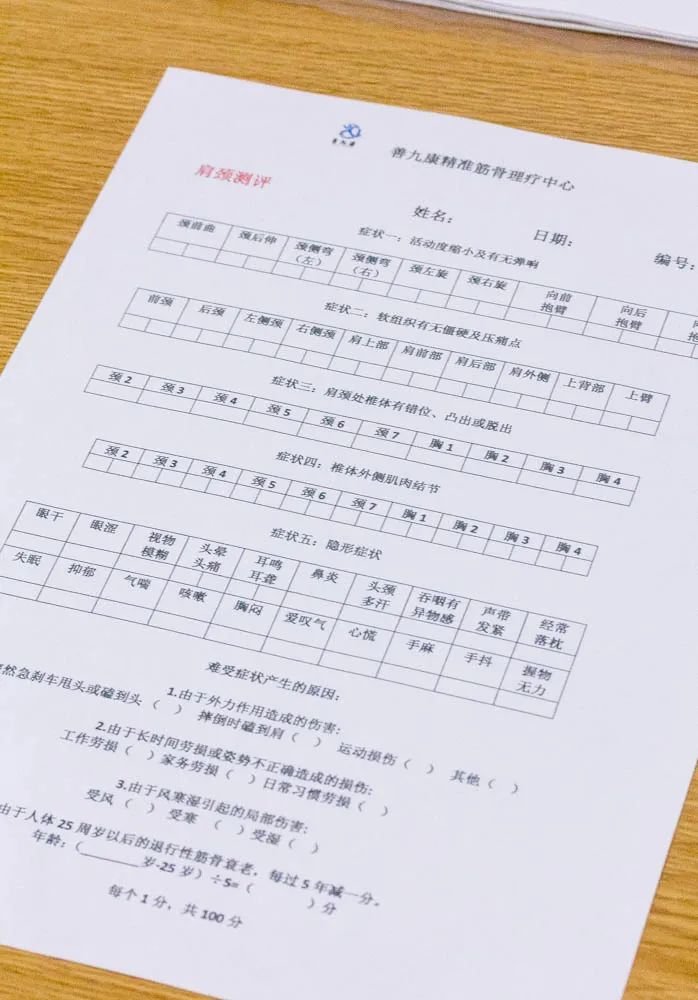 善九康
善九康精准筋骨理疗中心
肩颈测评
姓名： 日期： 编号：
症状一：活动度缩小及有无弹响
颈前曲 颈后伸 颈侧弯（左） 颈侧弯（右） 颈左旋 颈右旋 向前抱臂 向后抱臂
症状二：软组织有无僵硬及压痛点
前颈 后颈 左侧颈 右侧颈 肩上部 肩前部 肩后部 肩外侧 上背部 上臂
症状三：肩颈处椎体有错位、凸出或脱出
颈2 颈3 颈4 颈5 颈6 颈7 胸1 胸2 胸3 胸4
症状四：椎体外侧肌肉结节
颈2 颈3 颈4 颈5 颈6 颈7 胸1 胸2 胸3 胸4
症状五：隐形症状
眼干 眼涩 视物模糊 头晕头痛 耳鸣耳聋 鼻炎 头颈多汗 吞咽有异物感 声带发紧 经常落枕
失眠 抑郁 气喘 咳嗽 胸闷 爱叹气 心慌 手麻 手抖 握物无力
难受症状产生的原因：
1.由于外力作用造成的伤害：
然急刹车甩头或磕到头（ ） 摔倒时磕到肩（ ） 运动损伤（ ） 其他（ ）
2.由于长时间劳损或姿势不正确造成的损伤：
工作劳损（ ）家务劳损（ ）日常习惯劳损（ ）
3.由于风寒湿引起的局部伤害：
受风（ ） 受寒 （ ）受湿（ ）
由于人体25周岁以后的退行性筋骨衰老，每过5年减一分。
年龄：（________岁-25岁）÷5=（ ）分
每个1分，共100分